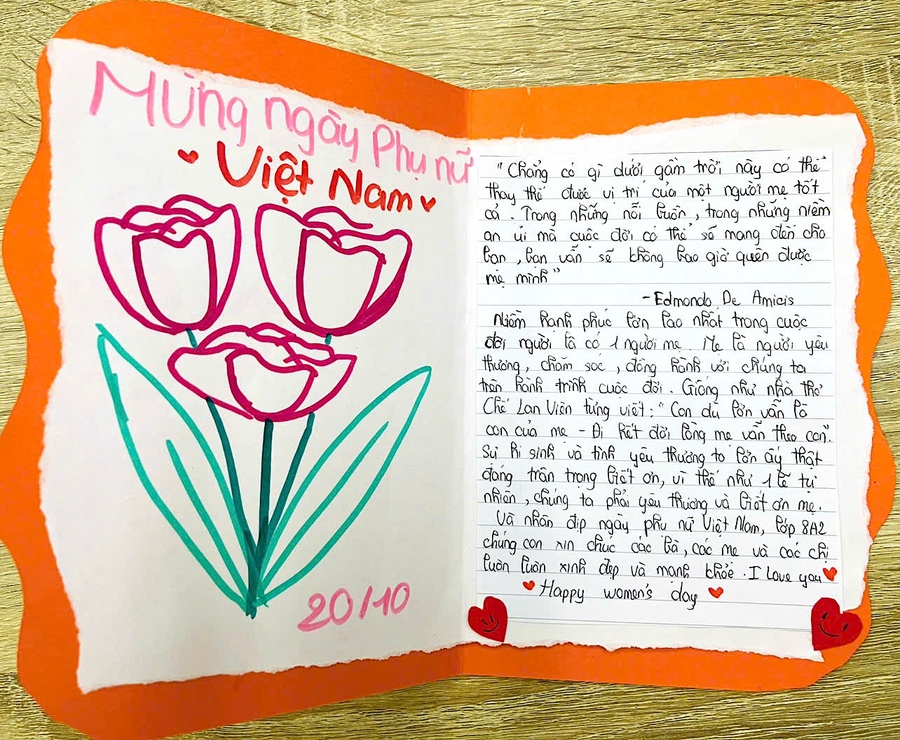 Mừng ngày Phụ nữ
Việt Nam
20/10
"Chẳng có gì dưới gầm trời này có thể
thay thế được vị trí của một người mẹ tốt
cả. Trong những nỗi buồn, trong những niềm
an ủi mà cuộc đời có thể sẽ mang đến cho
bạn, bạn vẫn sẽ không bao giờ quên được
mẹ mình"
- Edmondo De Amicis
Niềm hạnh phúc lớn lao nhất trong cuộc
đời người là có 1 người mẹ. Mẹ là người yêu
thương, chăm sóc, đồng hành với chúng ta
trên hành trình cuộc đời. Giống như nhà thơ
Chế Lan Viên từng viết: "Con dù lớn vẫn là
con của mẹ - Đi hết đời lòng mẹ vẫn theo con".
Sự hi sinh và tình yêu thương to lớn ấy thật
đáng trân trọng biết ơn, vì thế như 1 lẽ tự
nhiên, chúng ta phải yêu thương và biết ơn mẹ.
Và nhân dịp ngày phụ nữ Việt Nam, lớp 8A2
chúng con xin chúc các bà, các mẹ và các chị
luôn luôn xinh đẹp và mạnh khỏe. I love you
Happy women's day